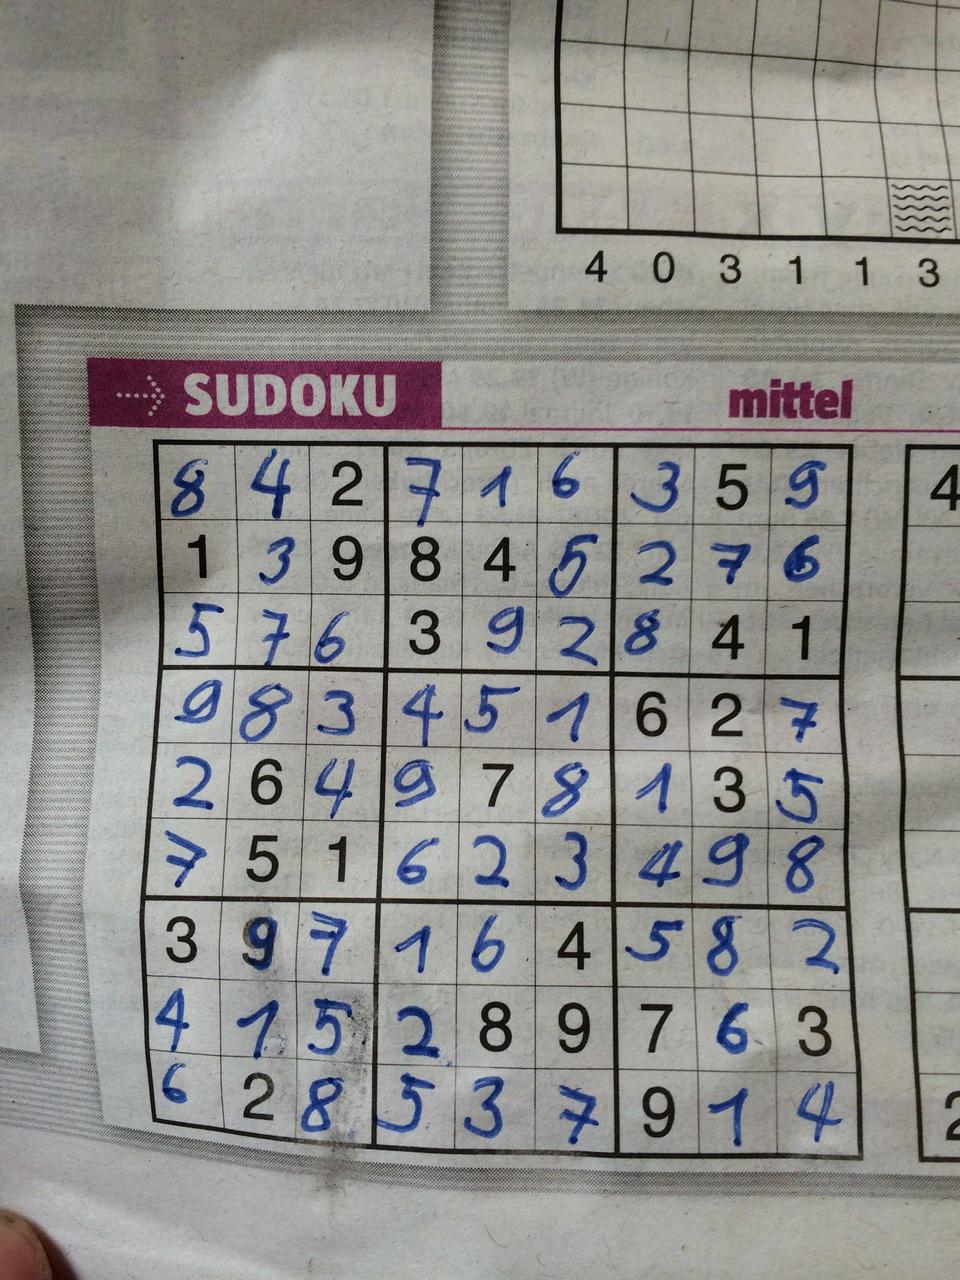 4 0 3 1 1 3
SUDOKU mittel
8 4 2 7 1 6 3 5 9
4
1 3 9 8 4 5 2 7 6
5 7 6 3 9 2 8 4 1
9 8 3 4 5 1 6 2 7
2 6 4 9 7 8 1 3 5
7 5 1 6 2 3 4 9 8
3 9 7 1 6 4 5 8 2
4 1 5 2 8 9 7 6 3
6 2 8 5 3 7 9 1 4
2